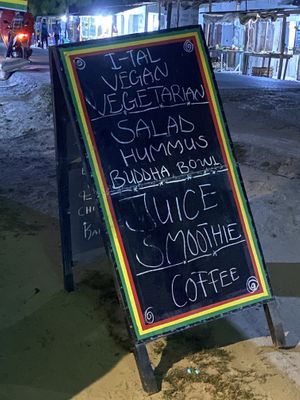 I-TAL
VEGAN
VEGETARIAN
SALAD
HUMMUS
BUDDHA BOWL
JUICE
SMOOTHIE
COFFEE